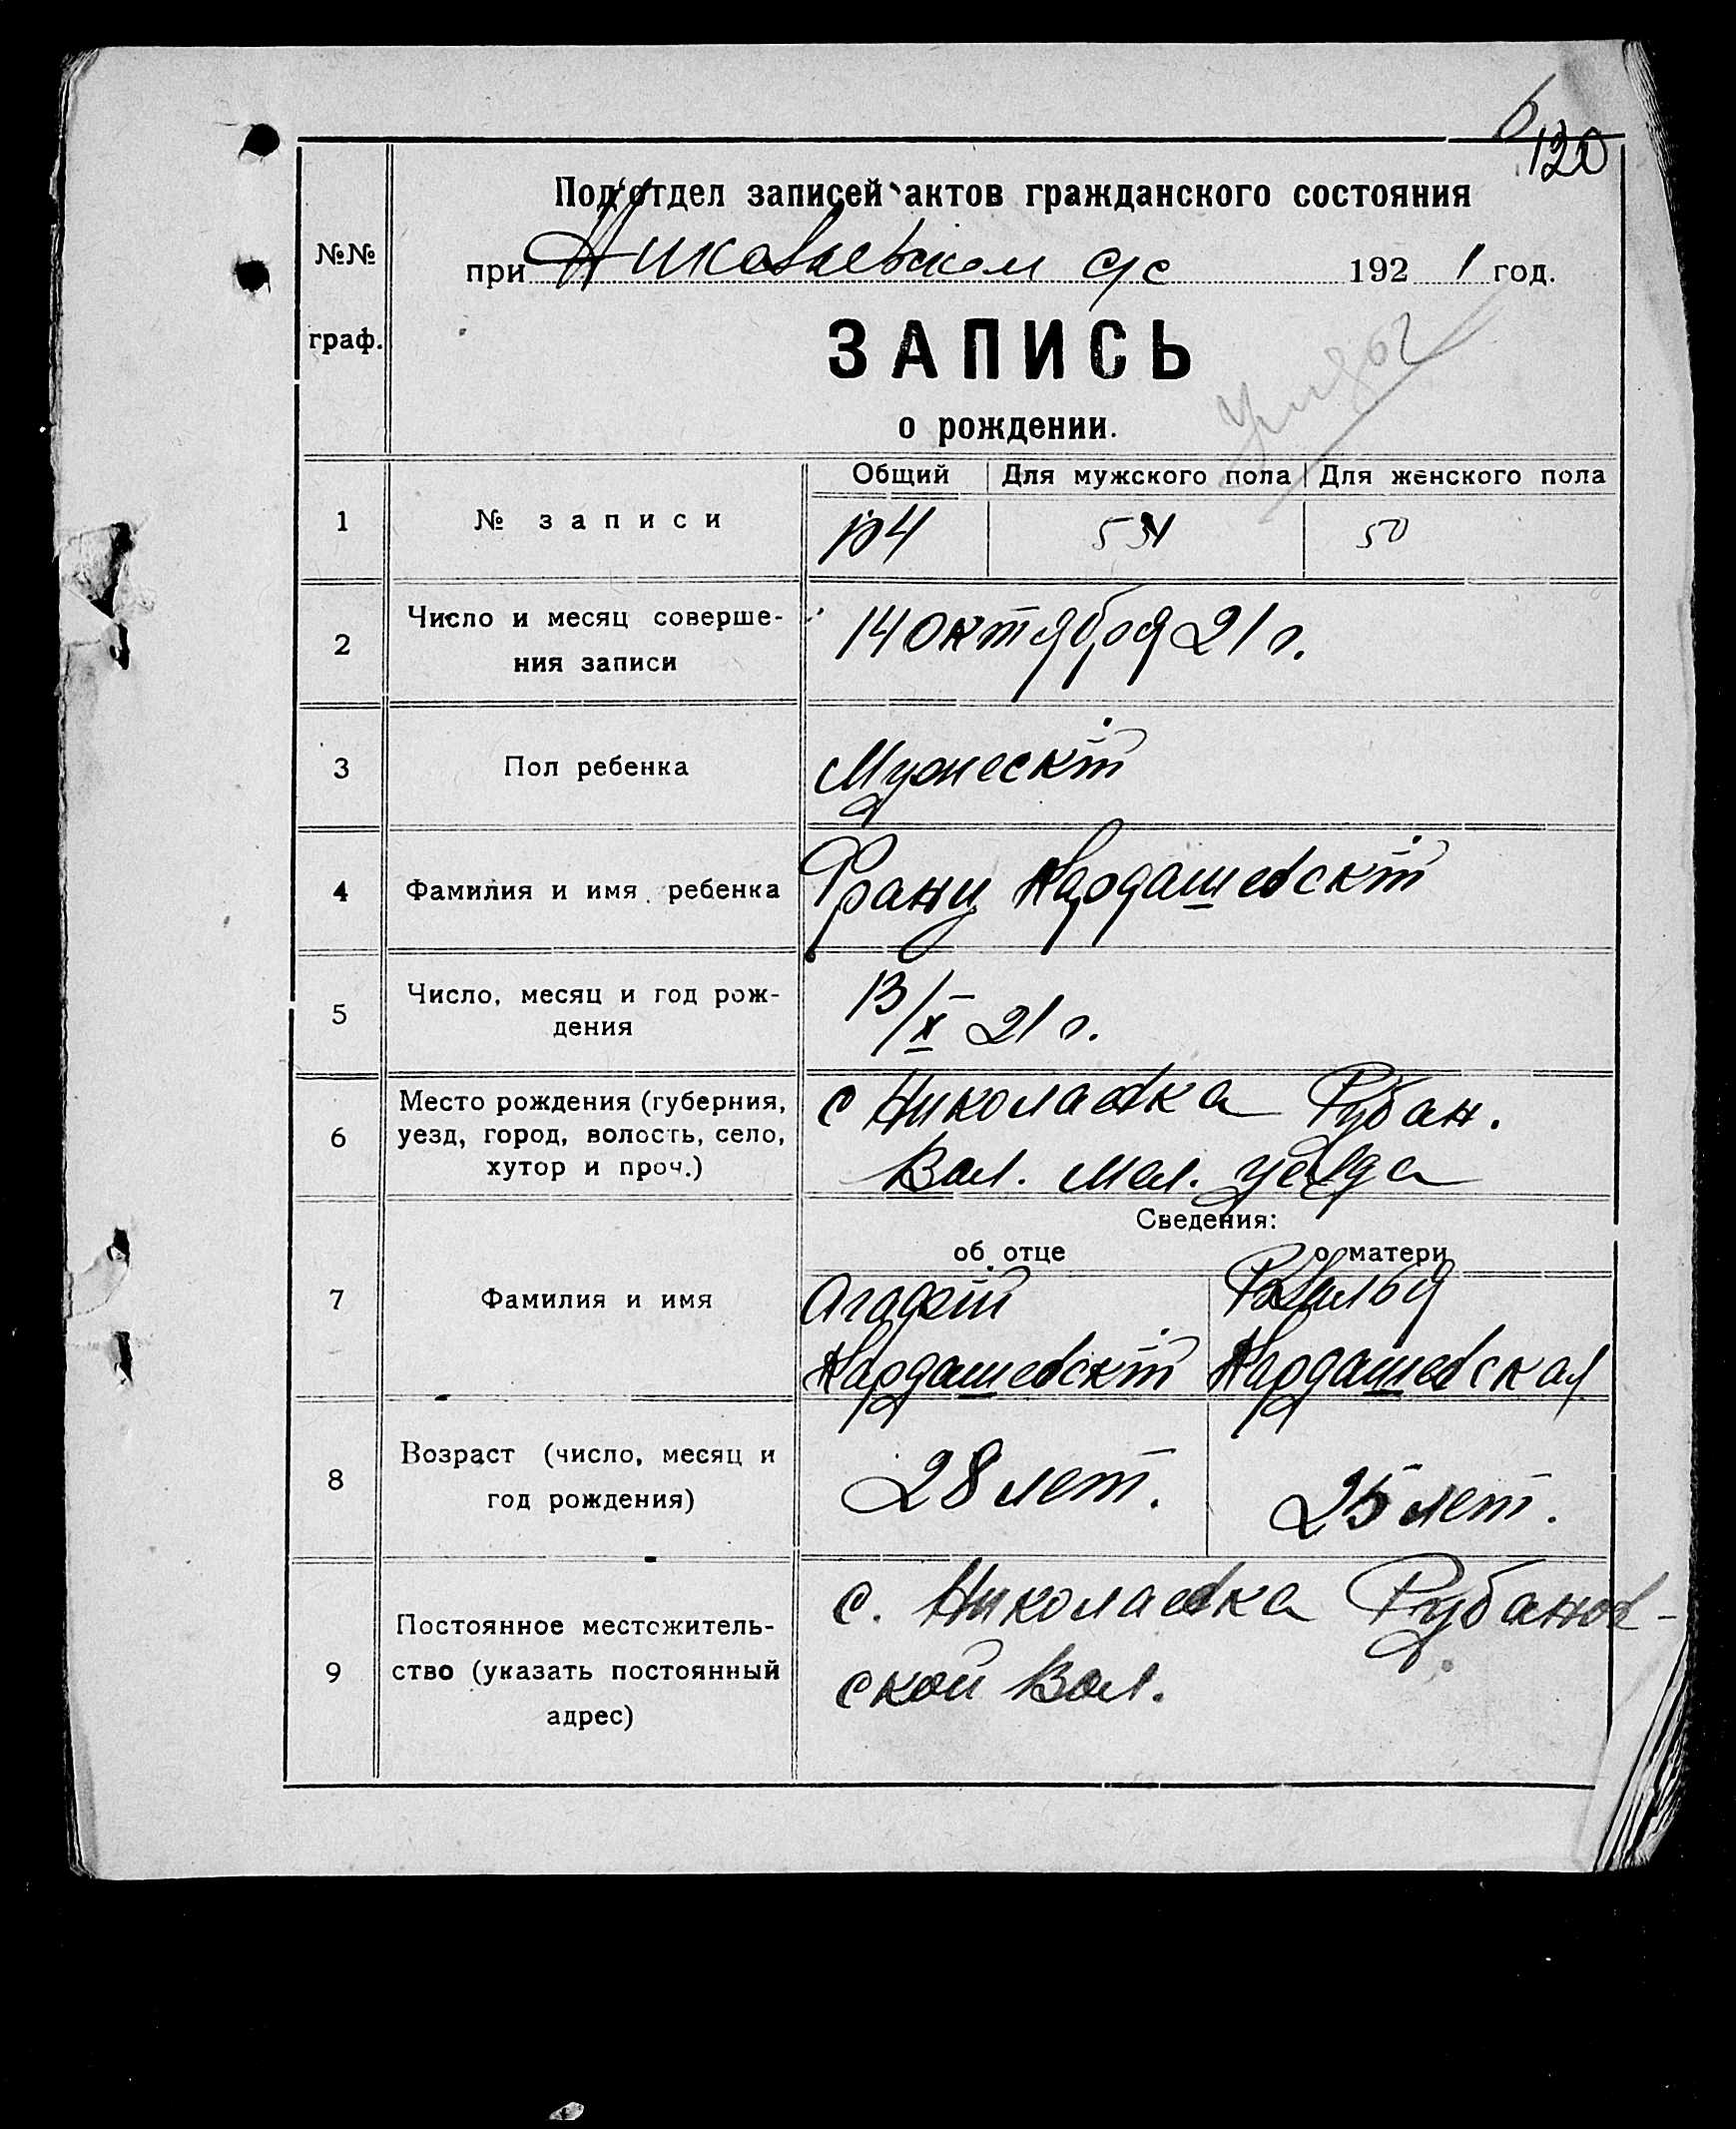 120
Подотдел записей актов гражданского состояния
№№
граф.
при Николаевском с/с 1921 год.
ЗАПИСЬ
о рождении.
Общий Для мужского пола Для женского пола
1 № записи 104 54 50
2 Число и месяц соверше-
ния записи
14 октября 21 г.
3 Пол ребенка Мужескій
4 Фамилия и имя ребенка Франц Кардашевскій
5 Число, месяц и год рож-
дения
13/X 21 г.
6 Место рождения (губерния,
уезд, город, волость, село,
хутор и проч.)
с Николаевка Рубан.
Вол. Мел. уезда
Сведения:
об отце о матери
7 Фамилия и имя
Кардашевскій Кардашевская
8 Возраст (число, месяц и
год рождения)
28 лет. 25 лет.
9 Постоянное местожитель-
ство (указать постоянный
адрес)
с. Николаевка Рубанов-
ской Вол.